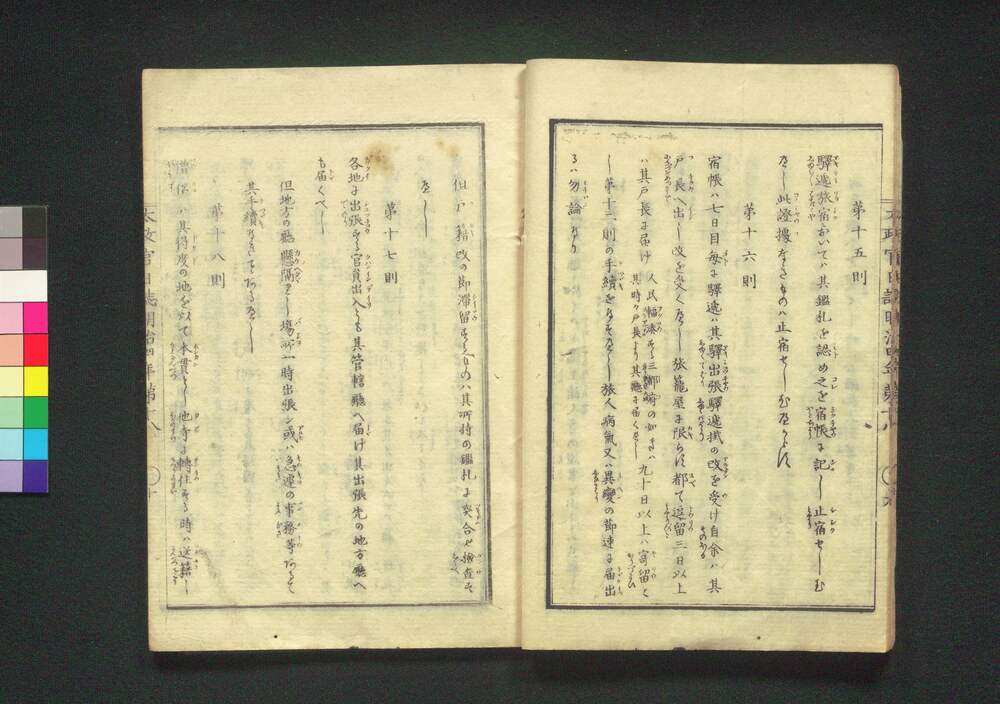 第十五則
驛遞旅宿おいてハ其鑑札を認め之を宿帳に記し止宿せしむ
べし此證據なきものハ止宿せしむべからず
第十六則
宿帳ハ七日目毎に驛遞ハ其驛出張驛遞掛の改を受け自余ハ其
戸長へ出し改を受くべし旅籠屋に限らず都て逗留三日以上
ハ其戸長に届け人民輻湊する三都府の如きハ九十日以上ハ寄留と
其時の戸長より其廳に届くべし
し第十二則の手續をなすべし旅人病氣又ハ異變の節速に届出
るハ勿論なり
太政官日誌明治四年第十八
但戸籍改の節滞留するものハ其所持の鑑札に突合せ檢査す
べし
第十七則
各地に出張する官員出入とも其管轄廳へ届け其出張先の地方廳へ
も届くべし
但地方の廳懸隔せし場所一時出張シ或ハ急速の事務等ありて
其手續なきもあるべし
第十八則
僧侶ハ其得度の地を以て本貫とし他寺に轉住する時ハ送籍し
太政官日誌明治四年第十八